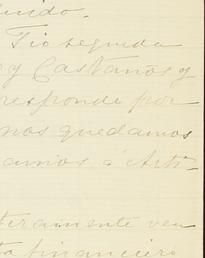 uido.
Tio seguida
y Castaños y
responde por
nos quedamos
amos á Arti-
teramente ven
financiero